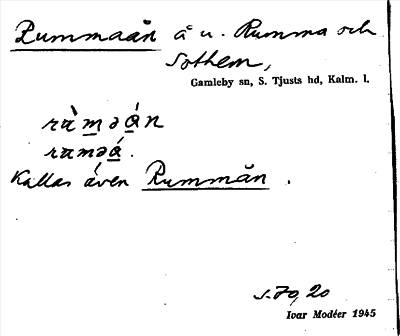 Rummaån å u. Rumma och
Sothem,
Gamleby sn, S. Tjusts hd, Kalm. l.
ràm̲əá̲n
raməá̲.
Kallas även Rummån.
s. 70, 20
Ivar Modéer 1945